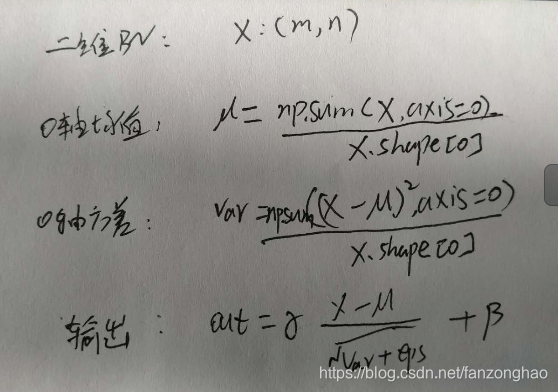 二维BN: X:(m,n)
0轴均值: μ= np.sum(X,axis=0)
X.shape[0]
0轴方差: var =npsum((X-μ)²,axis=0)
X.shape[0]
输出: out = γ X-μ + β
√var + eps
https://blog.csdn.net/fanzonghao